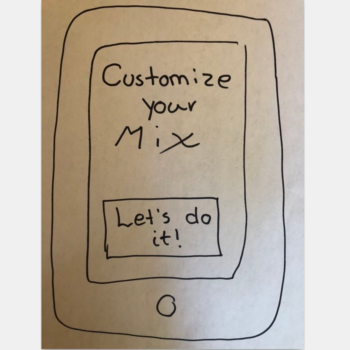 Customize
your
Mix
Let's do
it!